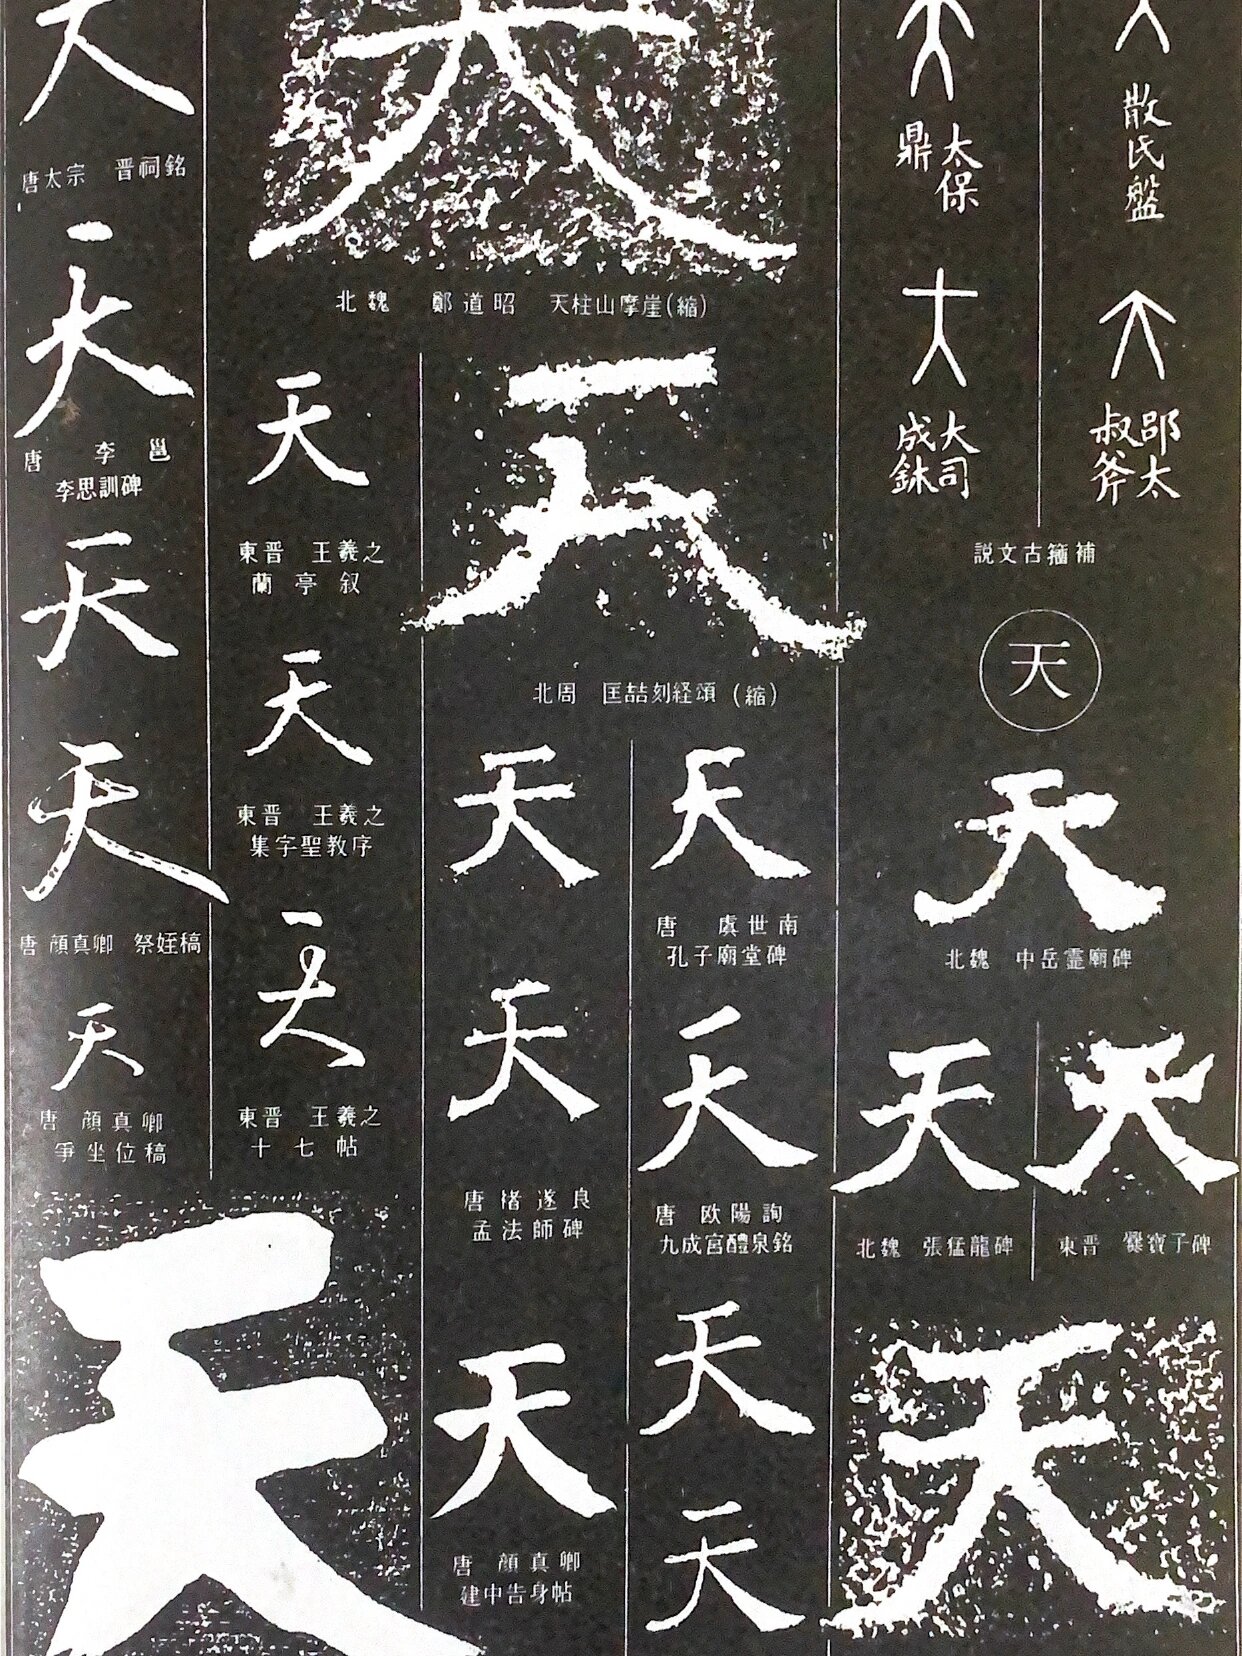 散氏盤
太保
鼎
邵太
叔斧
大司
成鉥
説文古籀補
天
天
北魏 中岳靈廟碑
天
東晋 爨寶子碑
天
北魏 張猛龍碑
天
天
北魏 鄭道昭 天柱山摩崖(縮)
天
北周 匡喆刻経頌(縮)
天
唐 虞世南
孔子廟堂碑
天
唐 欧陽詢
九成宮醴泉銘
天
天
天
天
唐 褚遂良
孟法師碑
天
唐 顔真卿
建中告身帖
天
東晋 王羲之
蘭亭叙
天
東晋 王羲之
集字聖教序
天
東晋 王羲之
十七帖
天
唐太宗 晋祠銘
天
唐 李邕
李思訓碑
天
天
唐 顔真卿 祭姪稿
天
唐 顔真卿
争坐位稿
天